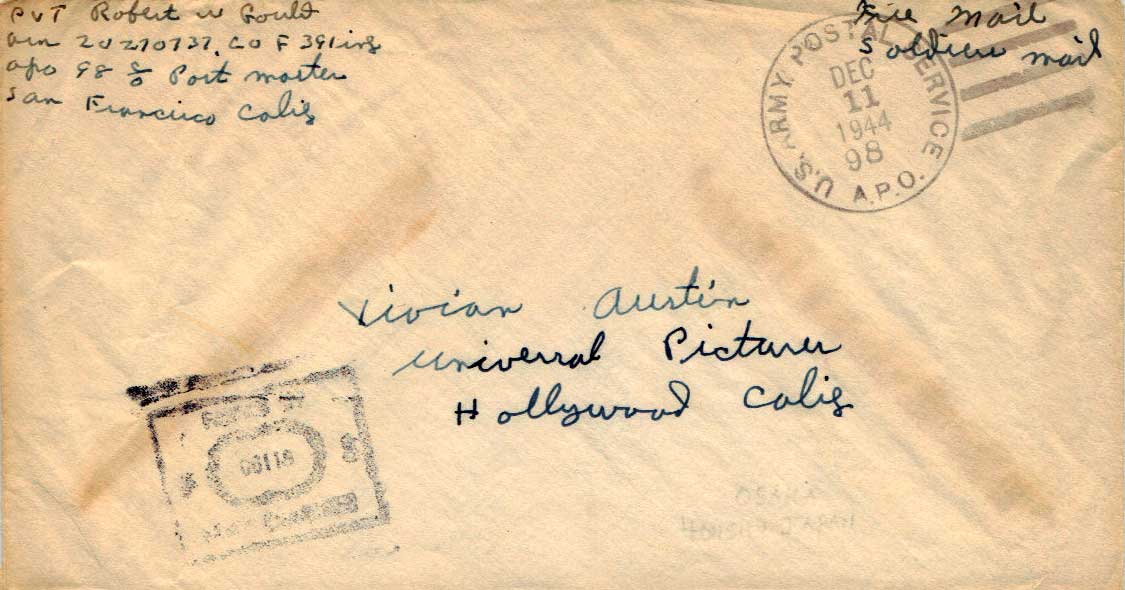 PVT Robert W Gould
asn 20270737, CO F 391 inf
apo 98 c/o Post master
San Francisco Calif
Free Mail
Soldiers mail
U.S. ARMY POSTAL SERVICE
DEC
11
1944
98
A.P.O.
Vivian Austin
Universal Pictures
Hollywood Calif
PASSED BY
06118
ARMY EXAMINER
HONSHU JAPAN